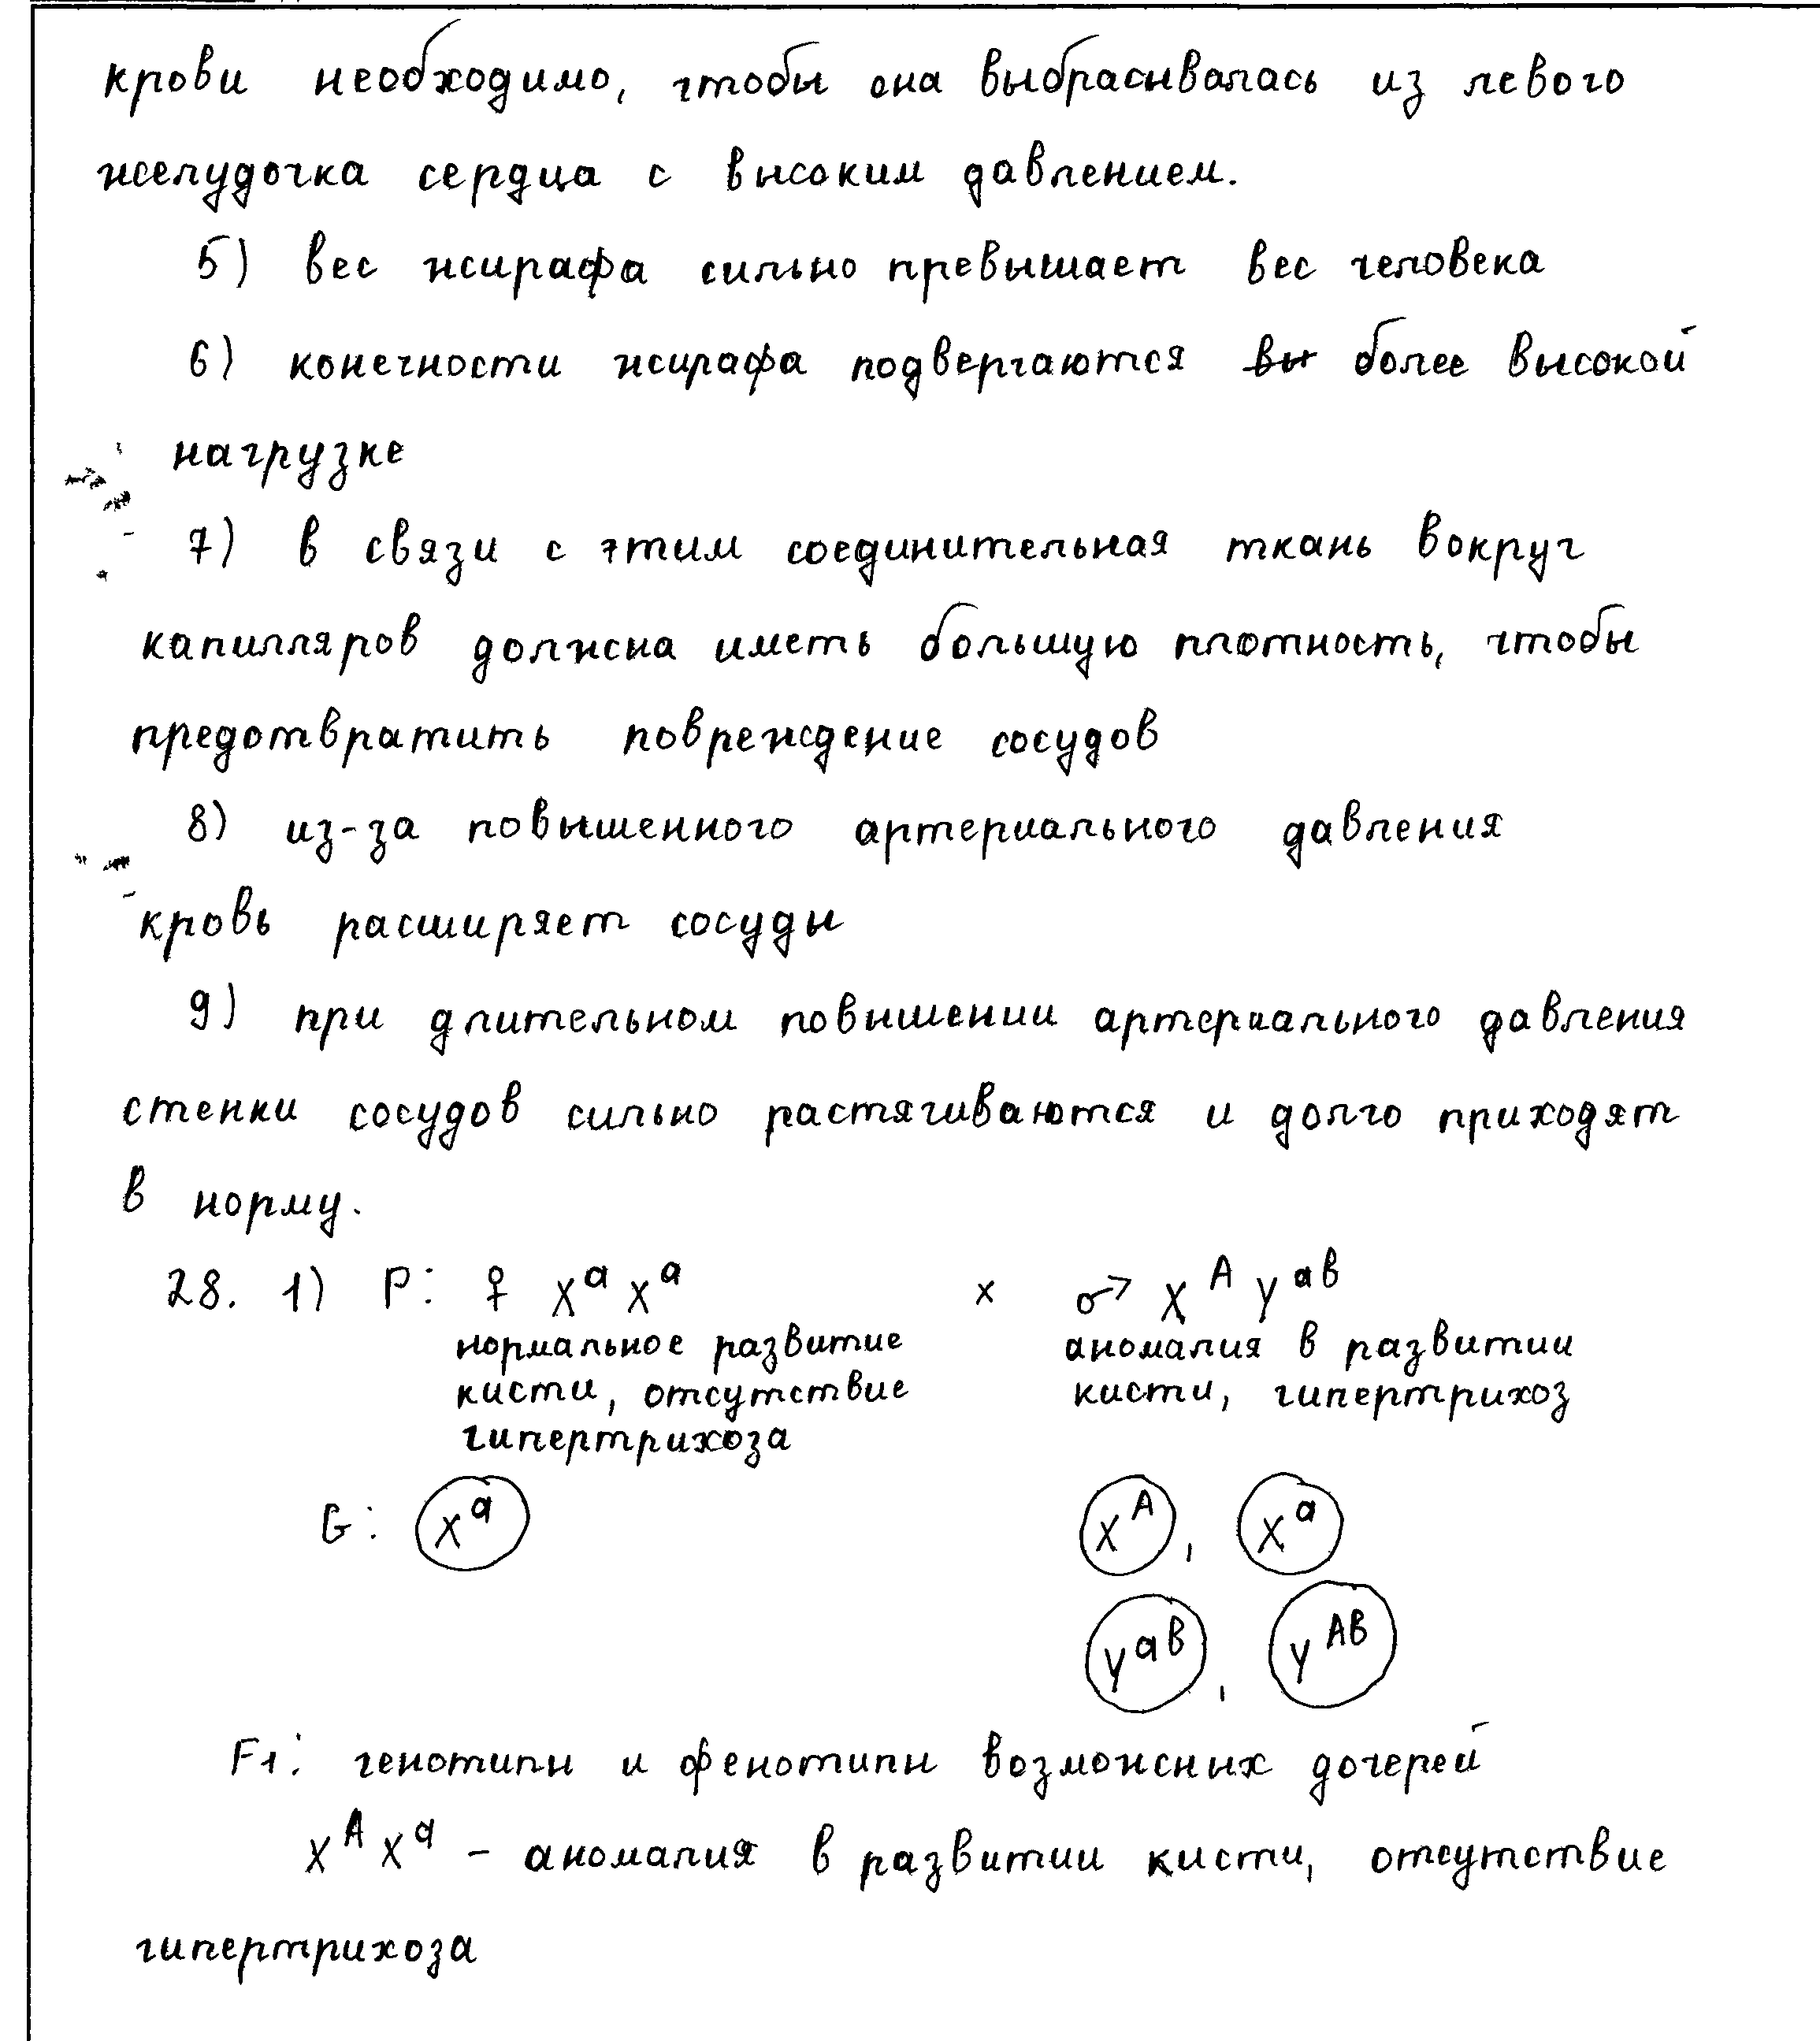 крови необходимо, чтобы она выбрасывалась из левого
желудочка сердца с высоким давлением.
5) вес жирафа сильно превышает вес человека
6) конечности жирафа подвергаются вы более высокой
нагрузке
7) в связи с этим соединительная ткань вокруг
капилляров должна иметь большую плотность, чтобы
предотвратить повреждение сосудов
8) из-за повышенного артериального давления
кровь расширяет сосуды
9) при длительном повышении артериального давления
стенки сосудов сильно растягиваются и долго приходят
в норму.
28. 1) P: ♀ Xᵃ Xᵃ x ♂ X^A Y^aB
нормальное развитие аномалия в развитии
кисти, отсутствие кисти, гипертрихоз
гипертрихоза
G: X^a X^A, X^a
Y^aB, Y^AB
F1: генотипы и фенотипы возможных дочерей
X^A X^a – аномалия в развитии кисти, отсутствие
гипертрихоза